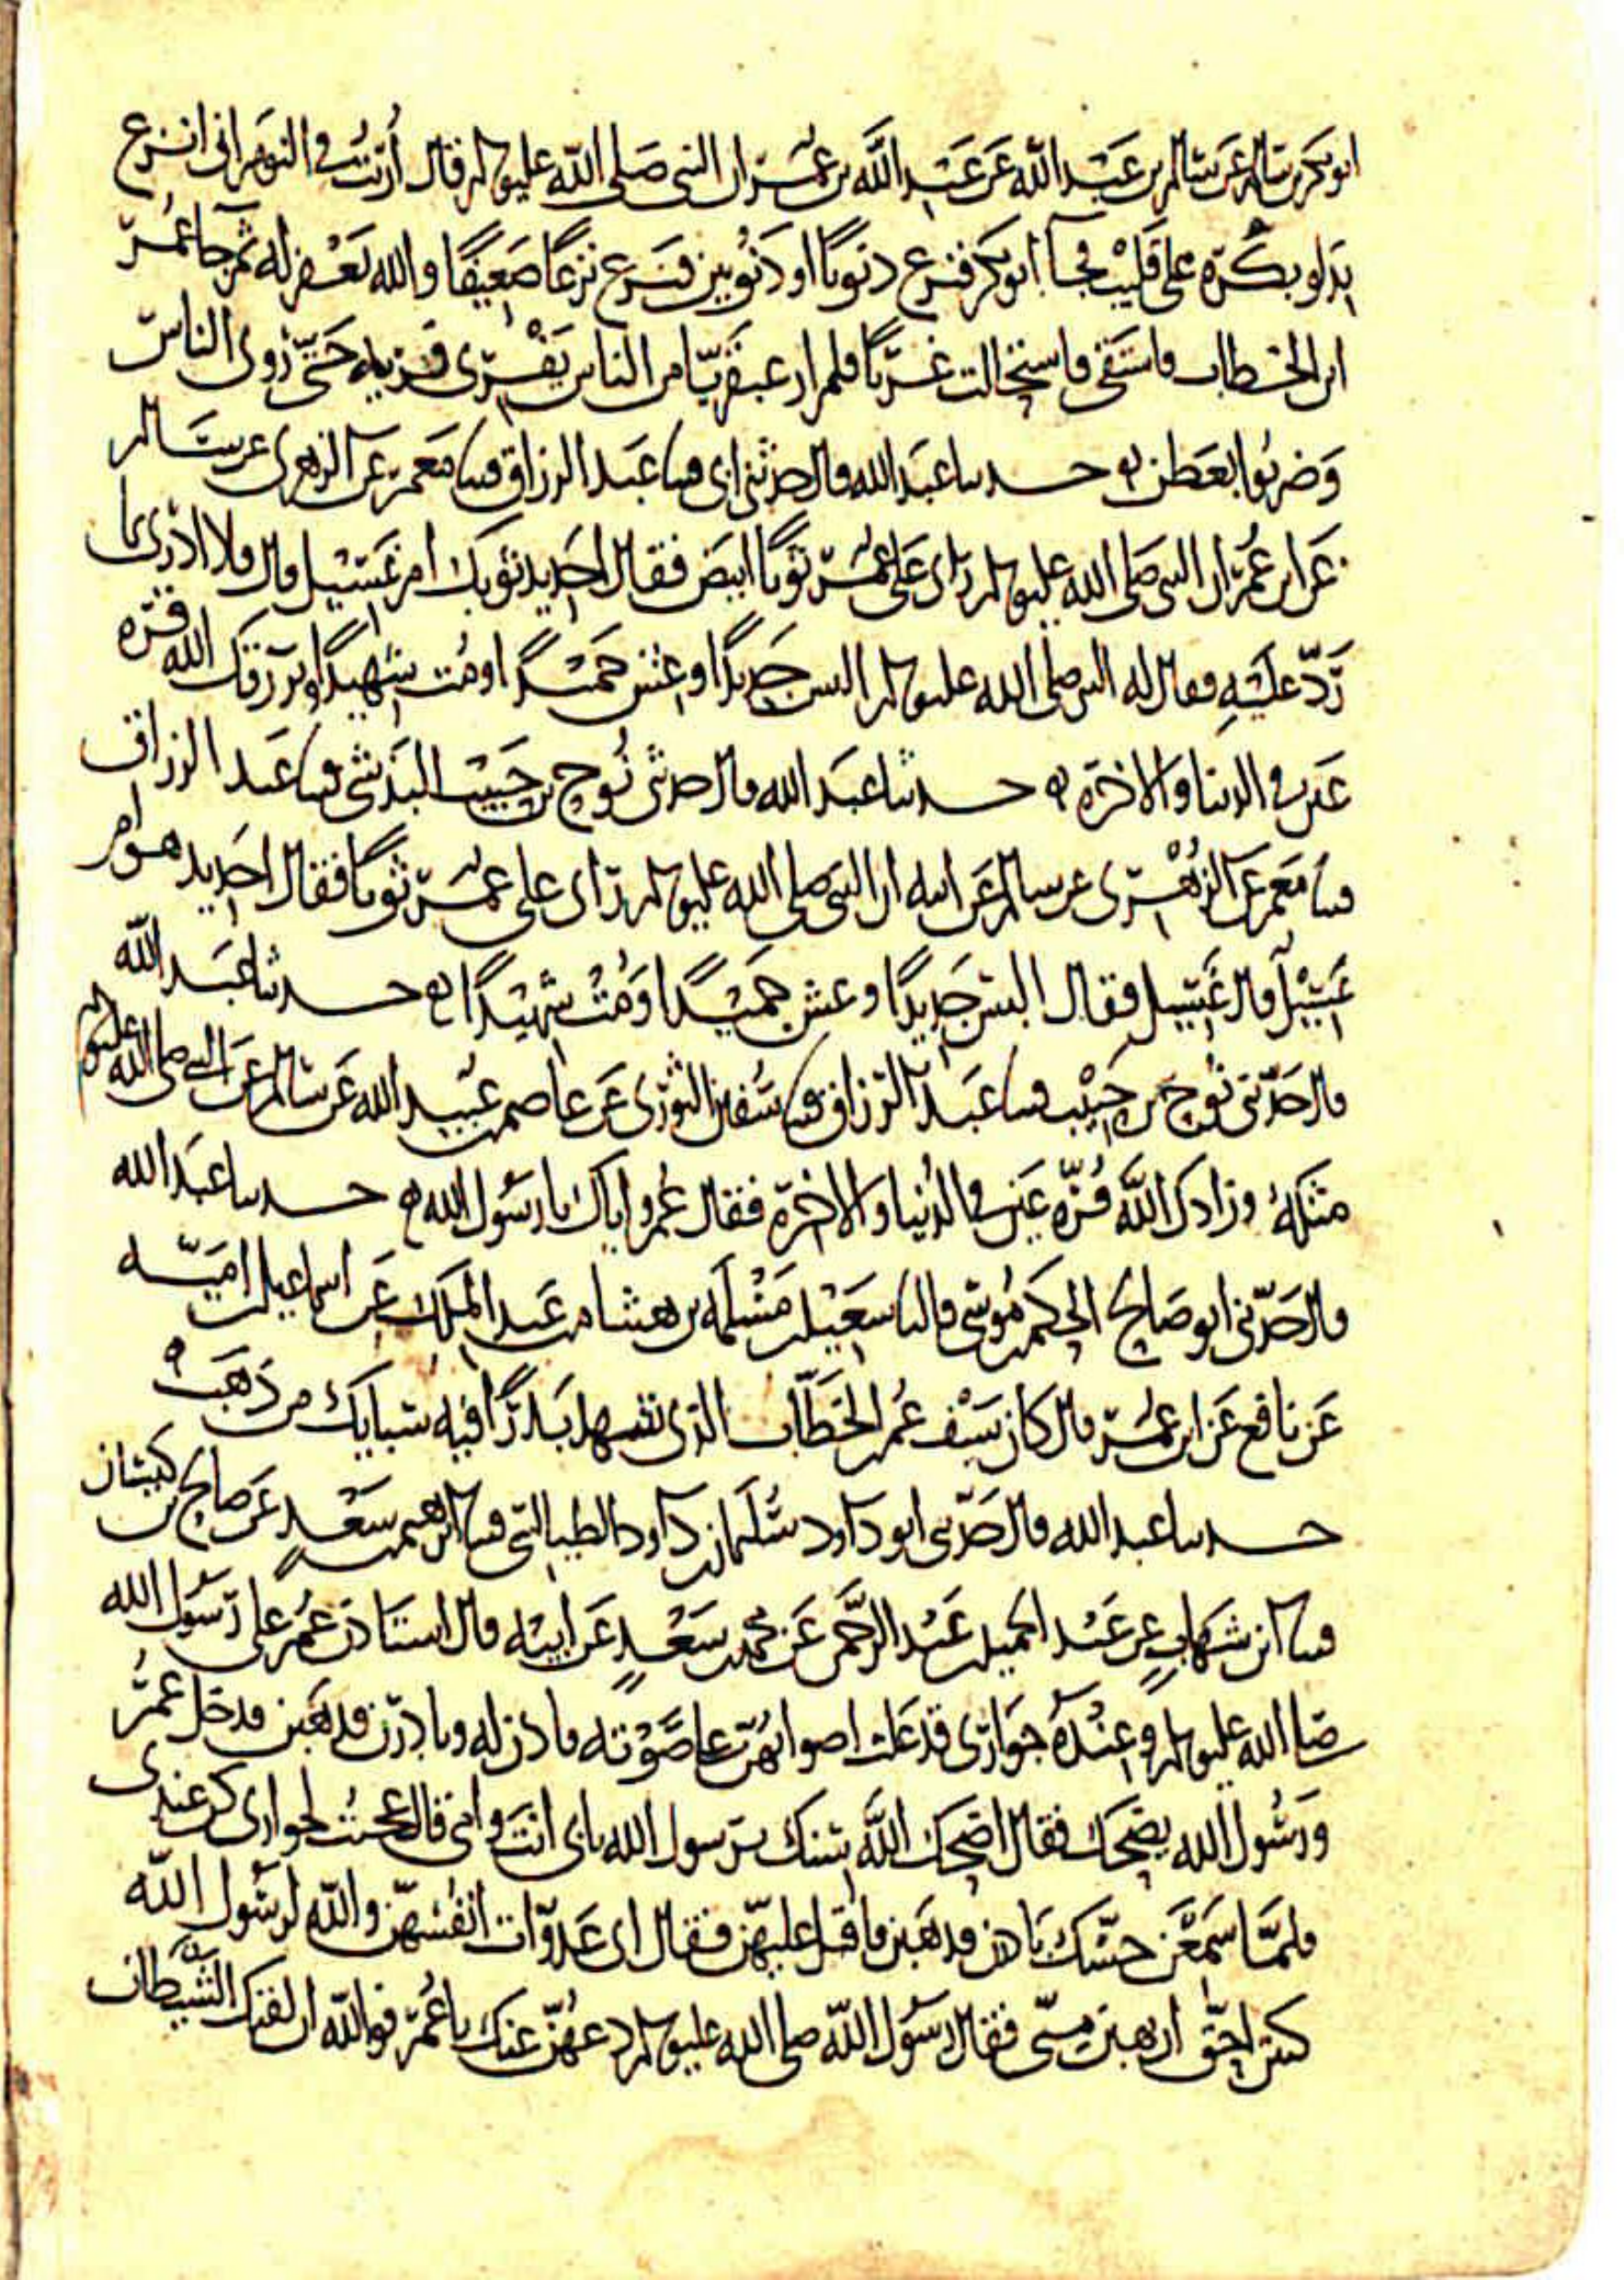 ابو بكر بن سالم عن سالم بن عبد الله عن عبد الله بن عمر ان النبي صلى الله عليه وسلم قال أُريت في النوم اني انزع
بدلو بكرة على قليب فجا ابو بكر فنزع ذنوبا او ذنوبين فنزع نزعا ضعيفا والله يغفر له ثم جا عمر
ابن الخطاب فاستقى فاستحالت غربا فلم ار عبقريا من الناس يفري فريه حتى روى الناس
وضربوا بعطن حدثنا عبد الله قال حدثني ابي قثنا عبد الرزاق قثنا معمر عن الزهري عن سالم
عن ابن عمر ان النبي صلى الله عليه وسلم راى على عمر ثوبا ابيض فقال اجديد ثوبك ام غسيل قال فلا ادري ما
رد عليه فقال له النبي صلى الله عليه وسلم البس جديدا وعش حميدا ومت شهيدا ويرزقك الله قرة
عين في الدنيا والاخرة حدثنا عبد الله قال حدثني نوح بن حبيب البذشي قثنا عبد الرزاق
قثنا معمر عن الزهري عن سالم عن ابيه ان النبي صلى الله عليه وسلم راى على عمر ثوبا فقال اجديد هو ام
غسيل قال غسيل فقال البس جديدا وعش حميدا ومت شهيدا حدثنا عبد الله
قال حدثني نوح بن حبيب قثنا عبد الرزاق قثنا سفين الثوري عن عاصم بن عبيد الله عن سالم عن النبي صلى الله عليه وسلم
مثله وزادك الله قرة عين في الدنيا والاخرة فقال عمر واياك يا رسول الله حدثنا عبد الله
قال حدثني ابو صالح الحكم بن موسى قال نا سعيد بن مسلمه بن هشام بن عبد الملك عن اسماعيل بن اميه
عن نافع عن ابن عمر قال كان سيف عمر بن الخطاب الذي شهد بدرا فيه سبايك من ذهب
حدثنا عبد الله قال حدثني ابو داود سليمان بن داود الطيالسي قثنا ابرهيم بن سعد عن صالح بن كيسان
قثنا ابن شهاب عن عبد الحميد بن عبد الرحمن عن محمد بن سعد عن ابيه قال استاذن عمر على رسول الله
صلى الله عليه وسلم وعنده جواري قد علت اصواتهن على صوته فاذن له وبادرن فذهبن فدخل عمر
ورسول الله يضحك فقال اضحك الله سنك يا رسول الله بابي انت وامي قال عجبت لجواري كن عندي
فلما سمعن حسك بادرن فذهبن فاقبل عليهن فقال اي عدوات انفسهن والله لرسول الله
كنتن احق ان تهبن مني فقال رسول الله صلى الله عليه وسلم دعهن عنك يا عمر فوالله ان لقيك الشيطان